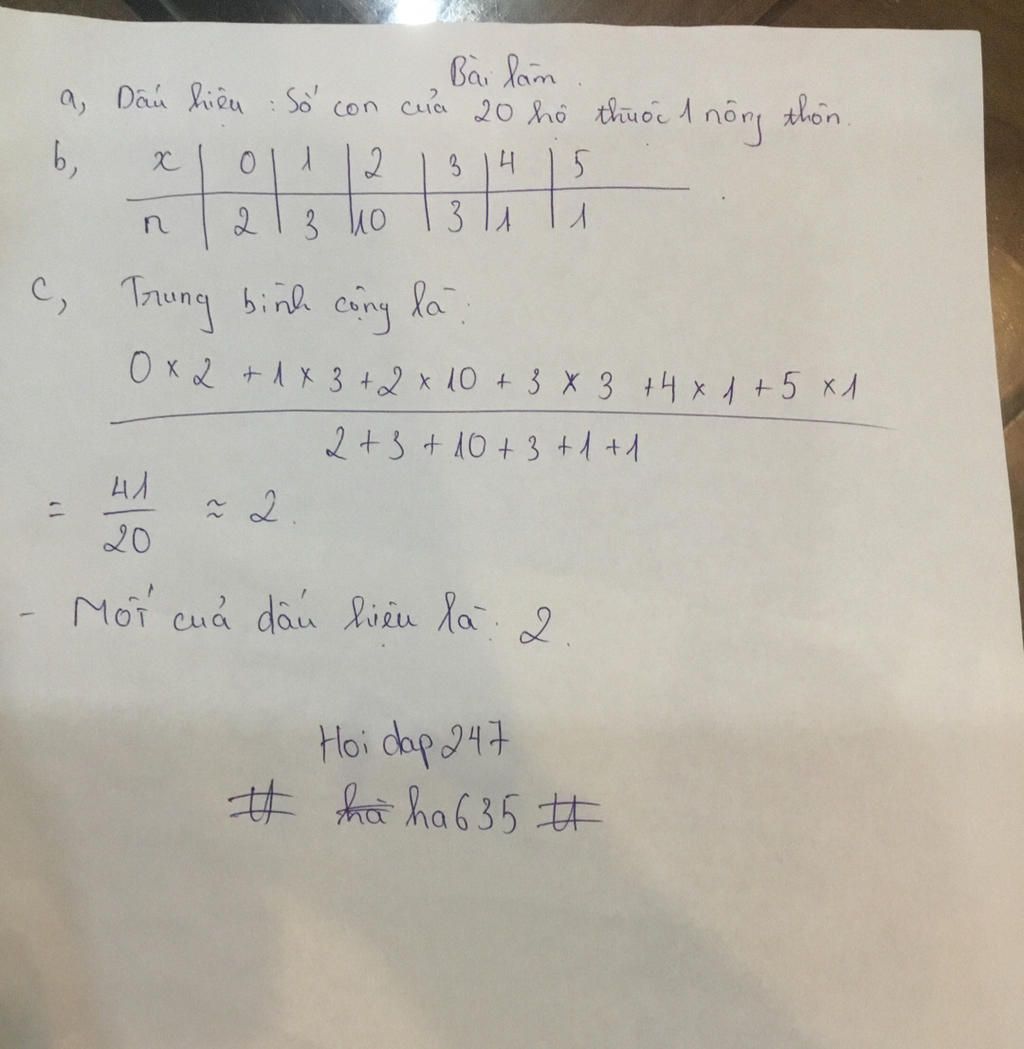 Bài làm.
a, Dấu hiệu : Số con của 20 hộ thuộc 1 nông thôn.
b, x | 0 | 1 | 2 | 3 | 4 | 5
n | 2 | 3 | 10 | 3 | 1 | 1
c, Trung bình cộng là:
0 × 2 + 1 × 3 + 2 × 10 + 3 × 3 + 4 × 1 + 5 × 1
2 + 3 + 10 + 3 + 1 + 1
= 41/20 ≈ 2.
- Mốt của dấu hiệu là: 2.
Hoi dap 247
# hà ha635 #